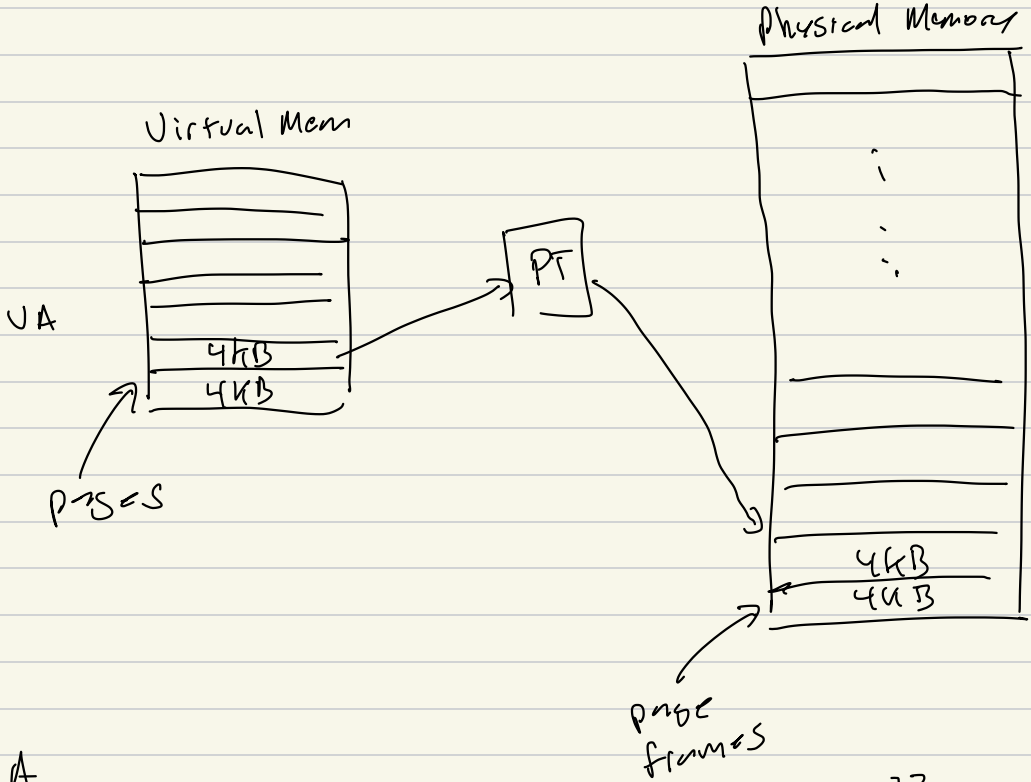 Physical Memory
Virtual Mem
PT
VA
4KB
4KB
pages
4KB
4KB
page
frames
A